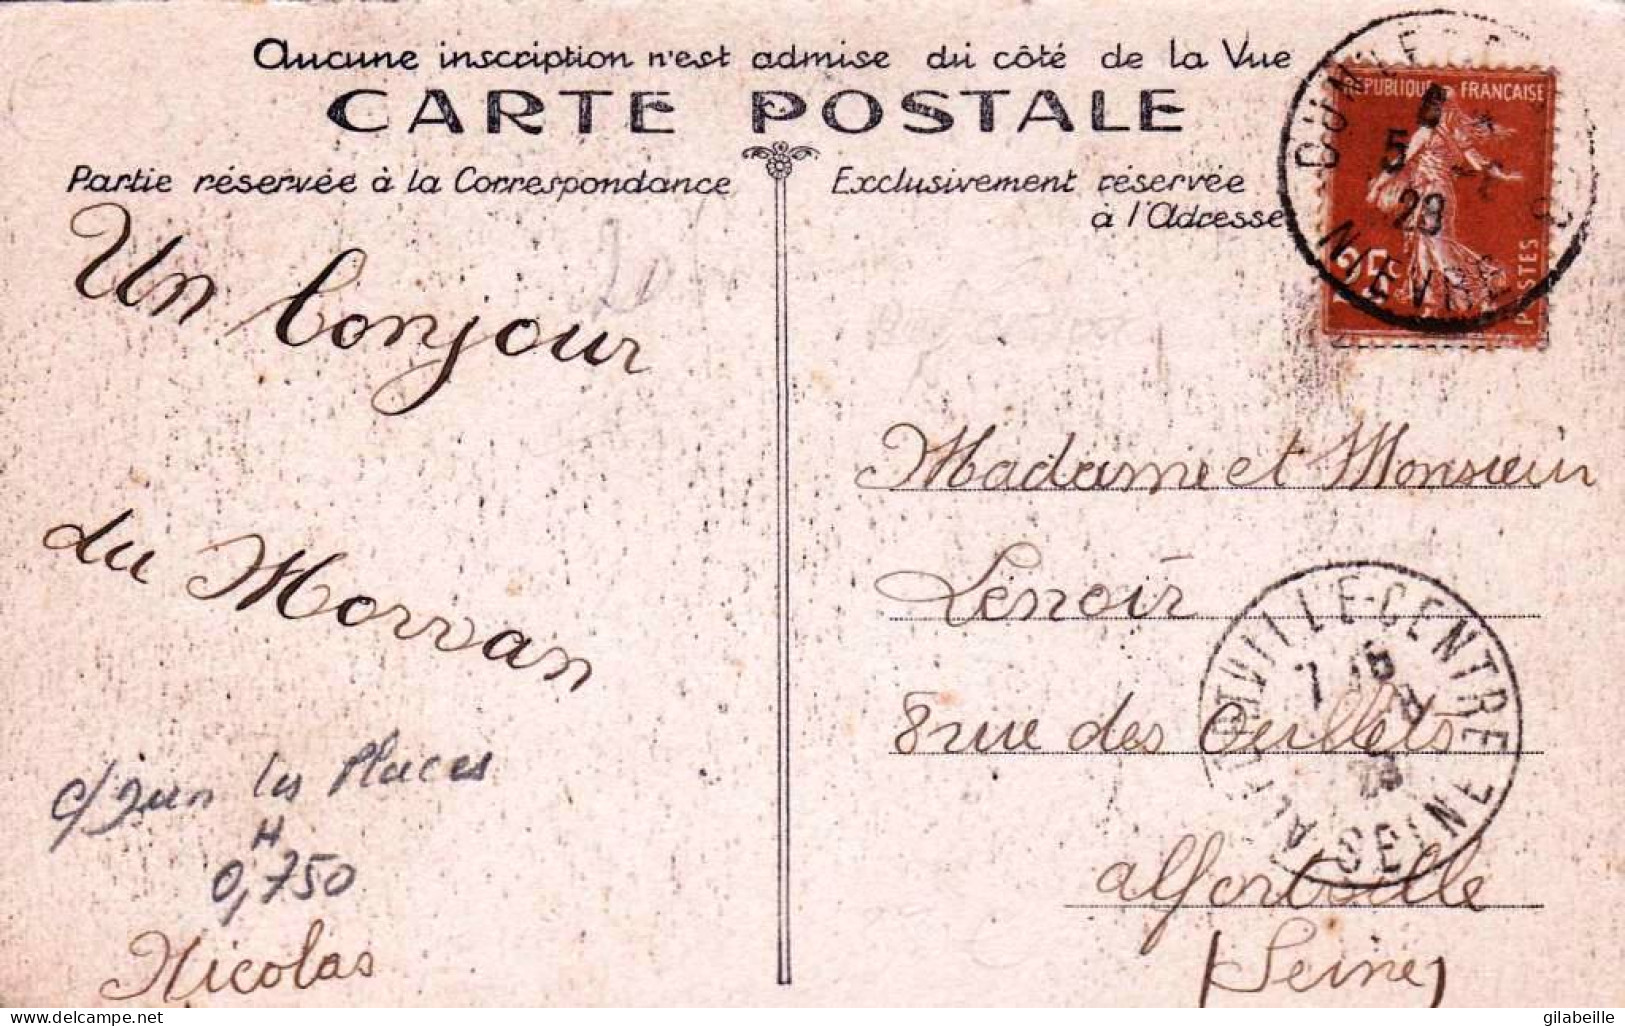 Aucune inscription n'est admise du côté de la Vue
CARTE POSTALE
Partie réservée à la Correspondance
Exclusivement réservée
à l'Adresse
RÉPUBLIQUE FRANÇAISE
POSTES
5
29
NIEVRE
Un bonjour
du Morvan
Nicolas
0,750
Madame et Monsieur
Lenoir
8 rue des Oeillets
alfortville
(Seine)
ALFORTVILLE-CENTRE
SEINE
delcampe.net
gilabeille